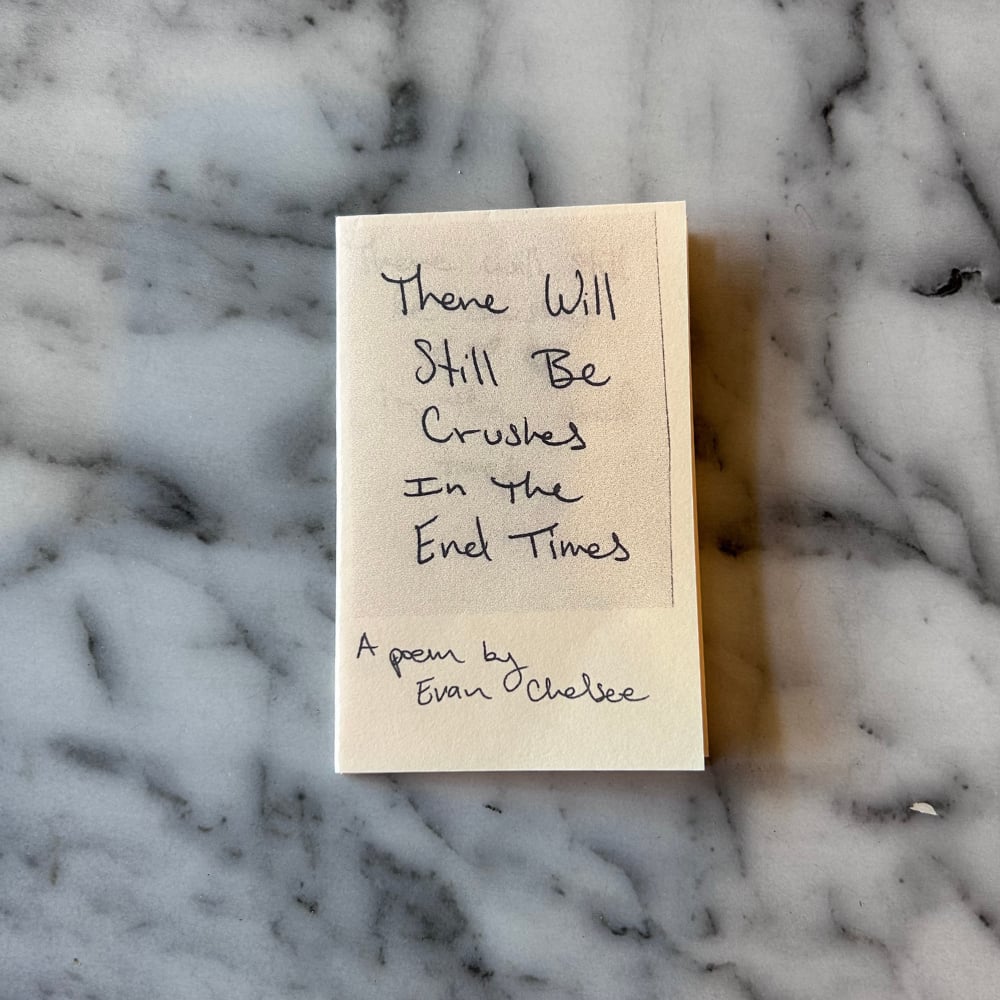 There Will
Still Be
Crushes
In The
End Times
A poem by
Evan Chelsee